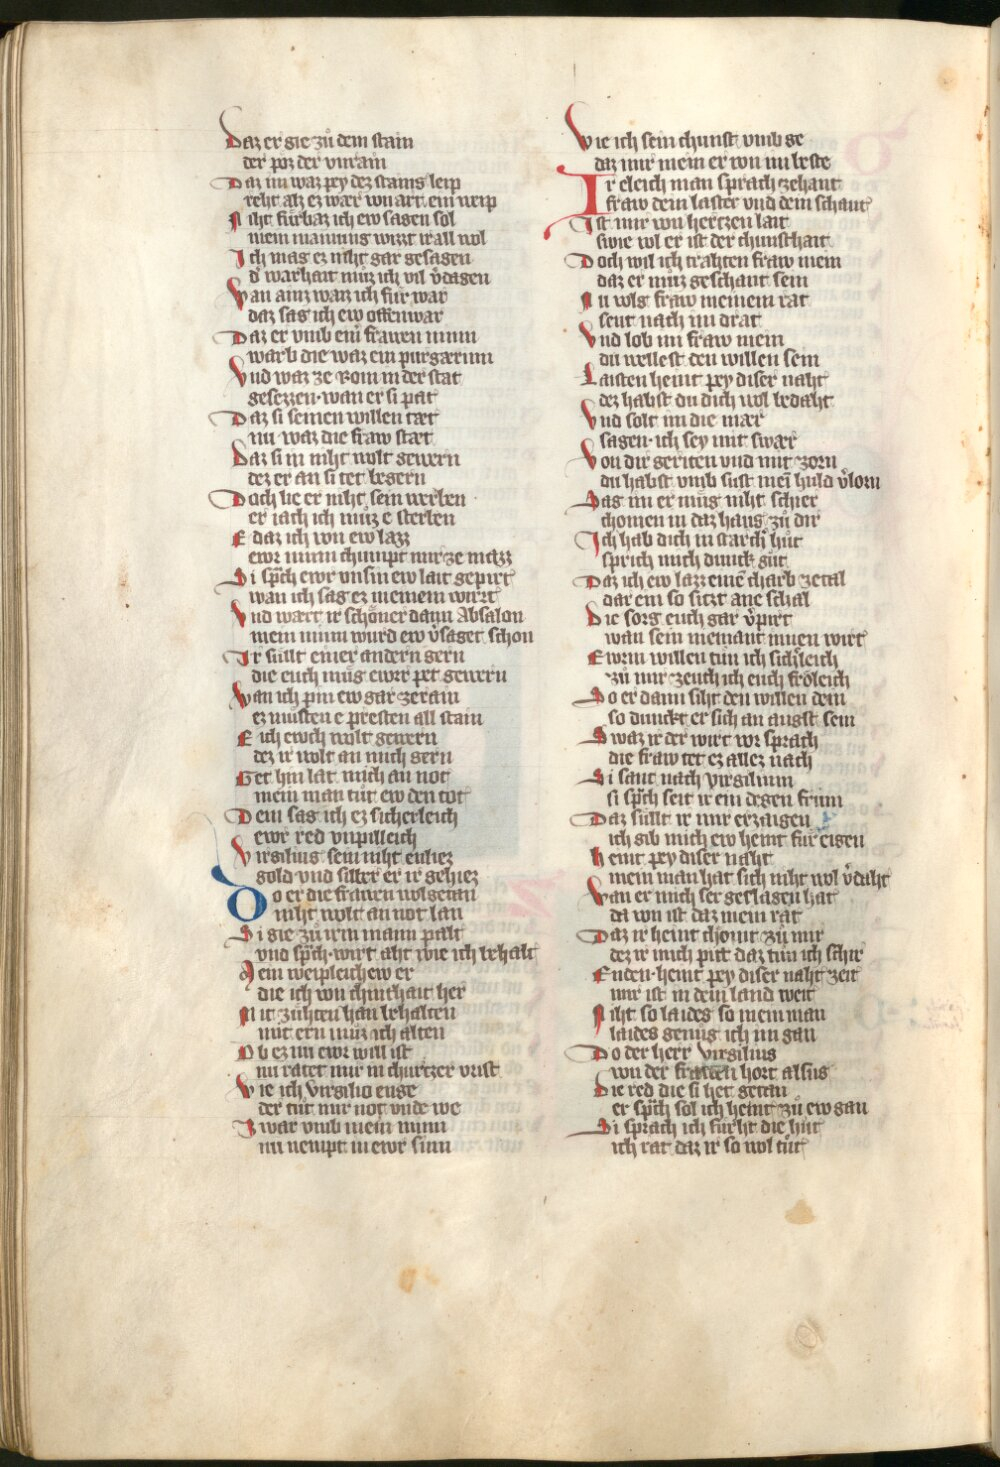 Daz er gie zů dem stain
der pöz der vnrain
Daz im waz pey dez stains leip
reht alz ez wær von art ein weip
Niht fürbaz ich ew sagen sol
mein mainung wizzt ir all wol
Ich mag ez niht gar gesagen
d' warhait můz ich vil v'dagen
Wan ainz waiz ich für war
daz sag ich ew offenwar
Daz er vmb ein frawen minn
warb die waz ein purgærinn
Vnd waz ze Rom in der stat
gesezzen. wan er si pat
Daz si seinen willen tæt
nu waz die fraw stæt
Daz si in niht wolt gewern
dez er an si tet begern
Doch lie er niht sein werben
er iach ich můz e sterben
E daz ich von ew lazz
ewr minn chumpt mir ze mazz
Si sp̃ch ewr vnsin ew lait gepirt
wan ich sag ez meinem wirt
Vnd wært ir schöner dann Absalon
mein minn wurd ew v'saget schon
Ir süllt einer andern gern
die euch müg ewrr pet gewern
Wan ich pin ew gar zerain
ez müsten e presten all stain
E ich ewch wolt gewern
dez ir wolt an mich gern
Get hin lat mich an not
mein man tůt ew den tot
Dem sag ich ez sicherleich
ewr red vnpilleich
Virgilius sein niht enliez
gold vnd silber er ir gehiez
Do er die frawen wolgetan
niht wolt an not lan
Si gie zů irm mann palt
vnd sp̃ch. wirt aht wie ich behalt
Mein weipleich ew er
die ich von chinthait her
Mit zühten han behalten
mit ern můz ich alten
Ob ez nu ewr will ist
nu ratet mir in churtzer vrist
Wie ich virgilio enge
der tůt mir not vnde we
Zwar vmb mein minn
nu nempt in ewr sinn
Wie ich sein chunst vmb ge
daz mir mein er von im beste
Ir eleich man sprach zehant
fraw dein laster vnd dein schant
Ist mir von hertzen lait
swie wol er ist der chunsthait
Doch wil ich trahten fraw mein
daz er můz geschant sein
Nu volg fraw meinem rat
sent nach im drat
Vnd lob im fraw mein
du wellest den willen sein
Laisten heint pey diser naht
dez habst du dich wol bedaht
Vnd solt im die mær
sagen. ich sey mit swær
Von dir geriten vnd mit zorn
du habst vmb sust mei͂ huld v'lorn
Sag im er müg niht schier
chomen in daz haus zů dir
Ich hab dich in starch' hůt
sprich mich dunck gůt
Daz ich ew lazz eine͂ charb zetal
dar ein so sitzt ane schal
Die sorg euch gar v'pirt
wan sein niemant innen wirt
Ewrm willen tůn ich sich'leich
zů mir zeuch ich euch fröleich
So er dann siht den willen dein
so dunckt er sich an angst sein
Swaz ir der wirt vor sprach
die fraw tet ez allez nach
Si sant nach virgilium
si sp̃ch seit ir ein degen frum
Daz süllt ir mir erzaigen
ich gib mich ew heint für eigen
Heint pey diser naht
mein man hat sich niht wol v'daht
Wan er mich ser geslagen hat
da von ist daz mein rat
Daz ir heint chomt zů mir
dez ir mich pitt daz tůn ich schir
Enden. heint pey diser naht zeit
mir ist in dem land weit
Niht so laides so mein man
laides genůg ich im gan
Do der herr virgilius
von der frawen hort alsus
Die red die si het getan
er sp̃ch sol ich heint zů ew gan
Si sprach ich fürht die hůt
ich rat daz ir so wol tůt